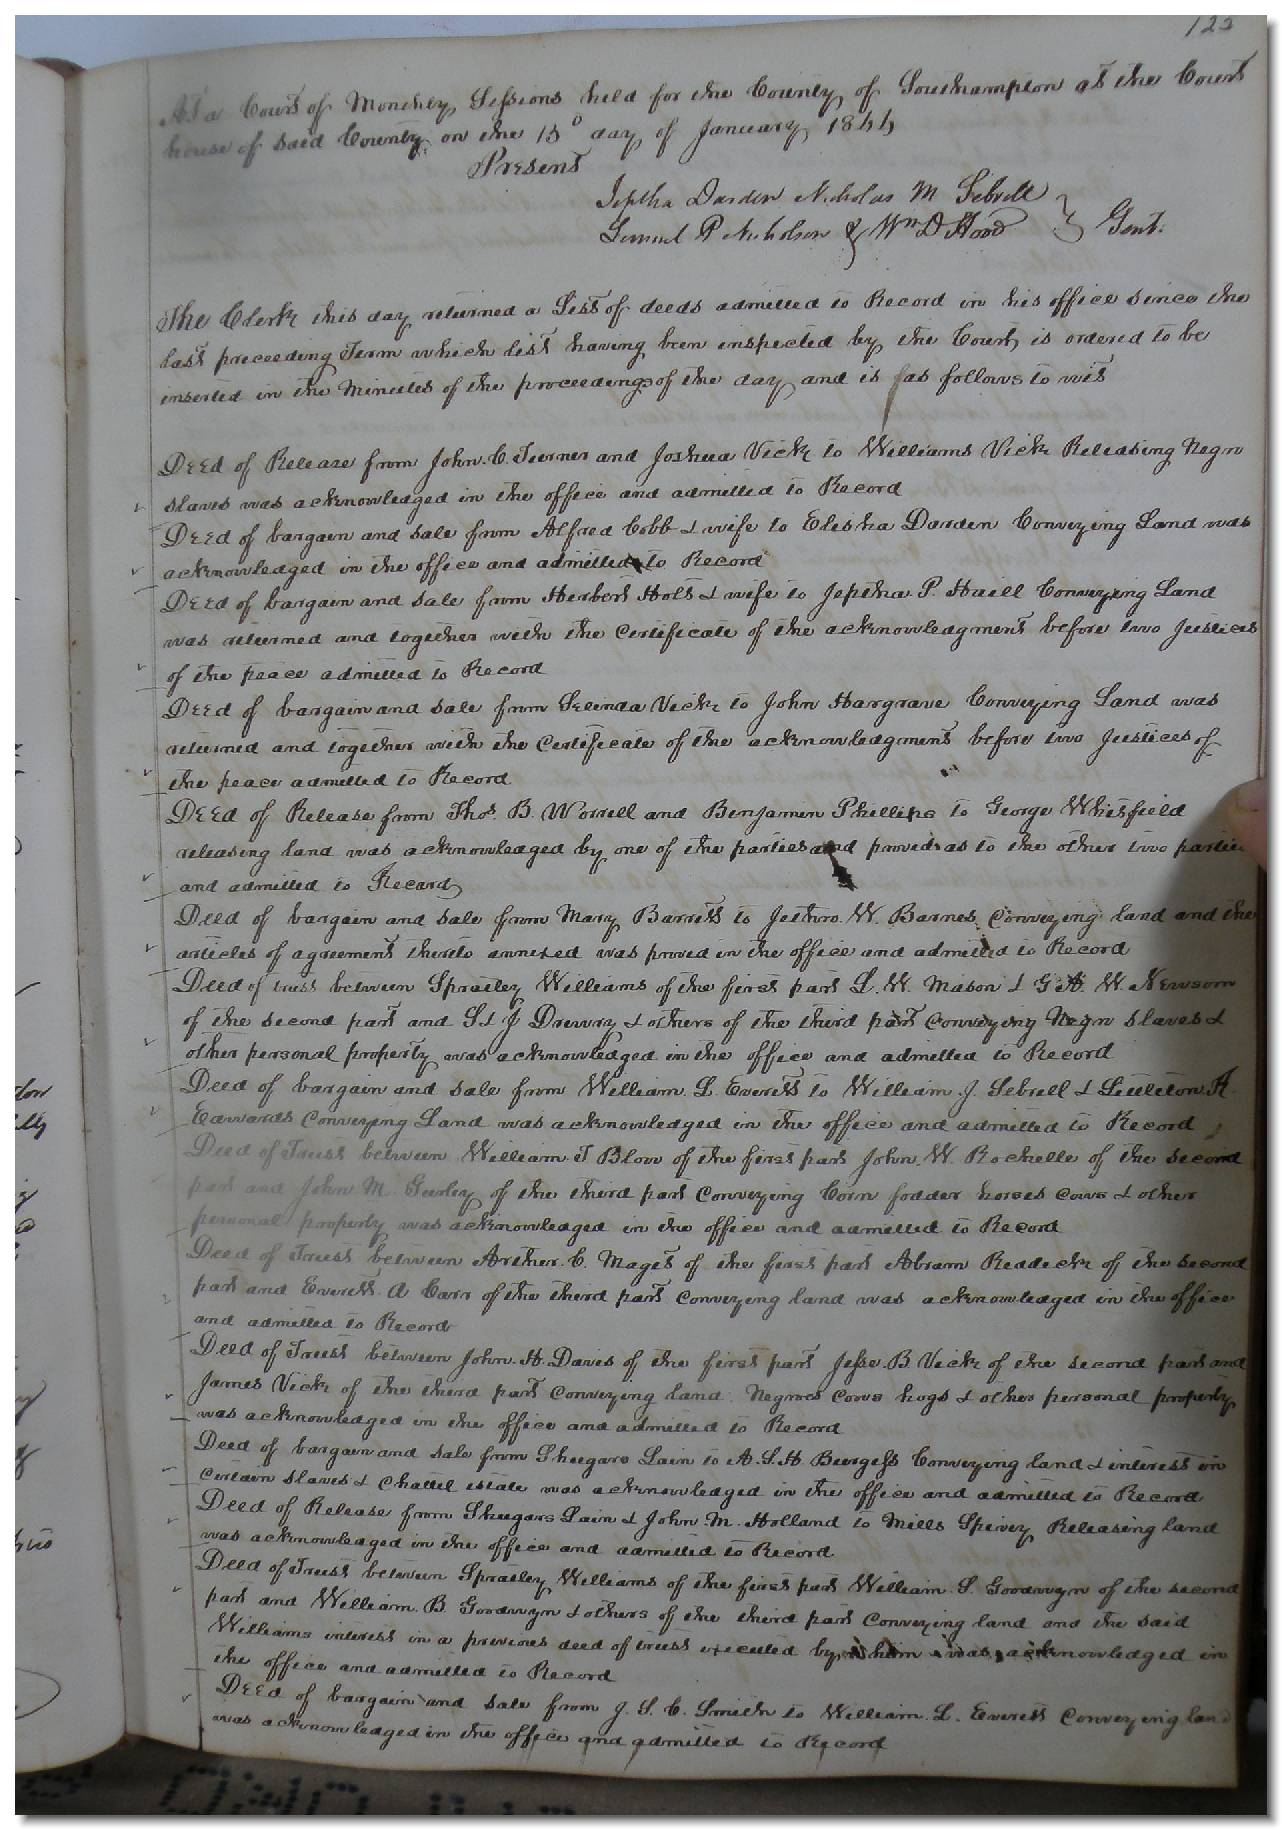 123
At a Court of Monthly Sessions held for the County of Southampton at the Court
house of said County on the 15 day of January 1844
Present
Jeptha Darden Nicholas M Sebrell
Samuel P Nicholson & Wm D Hood } Gent.
The Clerk this day returned a List of deeds admitted to Record in his office since the
last preceeding Term which list having been inspected by the Court, is ordered to be
inserted in the Minutes of the proceedings of the day and is as follows to wit
Deed of Release from John. C. Turner and Joshua Vick to Williams Vick Releasing Negro
slaves was acknowledged in the office and admitted to Record
Deed of bargain and sale from Alfred Cobb & wife to Elisha Darden Conveying Land was
acknowledged in the office and admitted to Record
Deed of bargain and sale from Herbert Holt & wife to Jeptha P. Conveying Land
was returned and together with the Certificate of the acknowledgment before two Justices
of the peace admitted to Record
Deed of bargain and sale from Selinda Vick to John Hargrave Conveying Land was
returned and together with the Certificate of the acknowledgment before two Justices of
the peace admitted to Record
Deed of Release from Thos. B. Worrell and Benjamin Phillips to George Whitfield
releasing land was acknowledged by one of the parties and proved as to the other two parties
and admitted to Record
Deed of bargain and sale from Mary Barrett to Jethro. W. Barnes, Conveying land and the
articles of agreement thereto annexed was proved in the office and admitted to Record
Deed of trust between Spratley Williams of the first part L. W. Mason & G. A. W. Newsom
of the second part and S & J Drewry & others of the third part conveying Negro slaves &
other personal property was acknowledged in the office and admitted to Record
Deed of bargain and sale from William. L. Everett to William. J. Sebrell & Littleton. R.
Edwards Conveying Land was acknowledged in the office and admitted to Record
Deed of Trust between William. T Blow of the first part John. W. Rochelle of the second
part and John M. Gurley of the third part Conveying Corn fodder horses cows & other
personal property was acknowledged in the office and admitted to Record
Deed of Trust between Arther. C. Maget of the first part Abram Reddick of the second
part and Everett A Carr of the third part Conveying land was acknowledged in the office
and admitted to Record
Deed of Trust between John. H. Davis of the first part Jesse. B Vick of the second part and
James Vick of the third part Conveying land Negroes cows hogs & other personal property
was acknowledged in the office and admitted to Record
Deed of bargain and sale from Shugars Lain to A. S. H. Burgess Conveying land & interest in
certain slaves & Chattel estate was acknowledged in the office and admitted to Record
Deed of Release from Shugars Lain & John M. Holland to Mills Spivey Releasing land
was acknowledged in the office and admitted to Record
Deed of Trust between Spratley Williams of the first part William. S. Goodwyn of the second
part and William. B. Goodwyn & others of the third part Conveying land and the said
Williams interest in a previous deed of trust executed by him was acknowledged in
the office and admitted to Record
Deed of bargain and sale from J. S. C. Smith to William. L. Everett Conveying land
was acknowledged in the office and admitted to Record